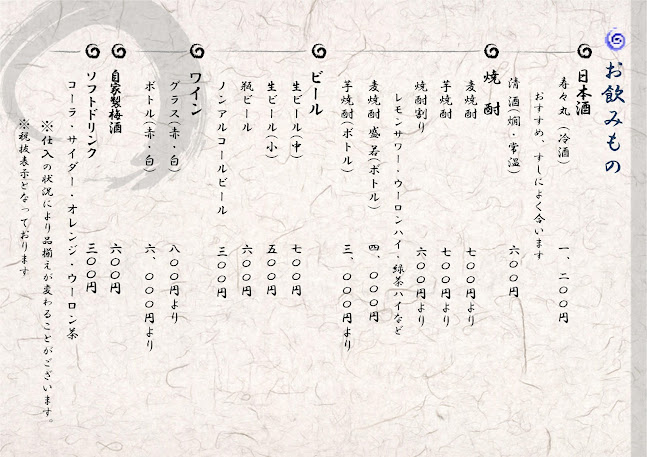 お飲みもの
日本酒
寿々丸（冷酒）　一、二〇〇円
おすすめ、すしによく合います
清酒（燗・常温）　六〇〇円
焼酎
麦焼酎　七〇〇円より
芋焼酎　七〇〇円より
焼酎割り　六〇〇円より
レモンサワー・ウーロンハイ・緑茶ハイなど
麦焼酎 盛若（ボトル）　四、〇〇〇円
芋焼酎（ボトル）　三、〇〇〇円より
ビール
生ビール（中）　七〇〇円
生ビール（小）　五〇〇円
瓶ビール　六〇〇円
ノンアルコールビール　三〇〇円
ワイン
グラス（赤・白）　八〇〇円より
ボトル（赤・白）　六、〇〇〇円より
自家製梅酒　六〇〇円
ソフトドリンク　三〇〇円
コーラ・サイダー・オレンジ・ウーロン茶
※仕入の状況により品揃えが変わることがございます。
※税抜表示となっております